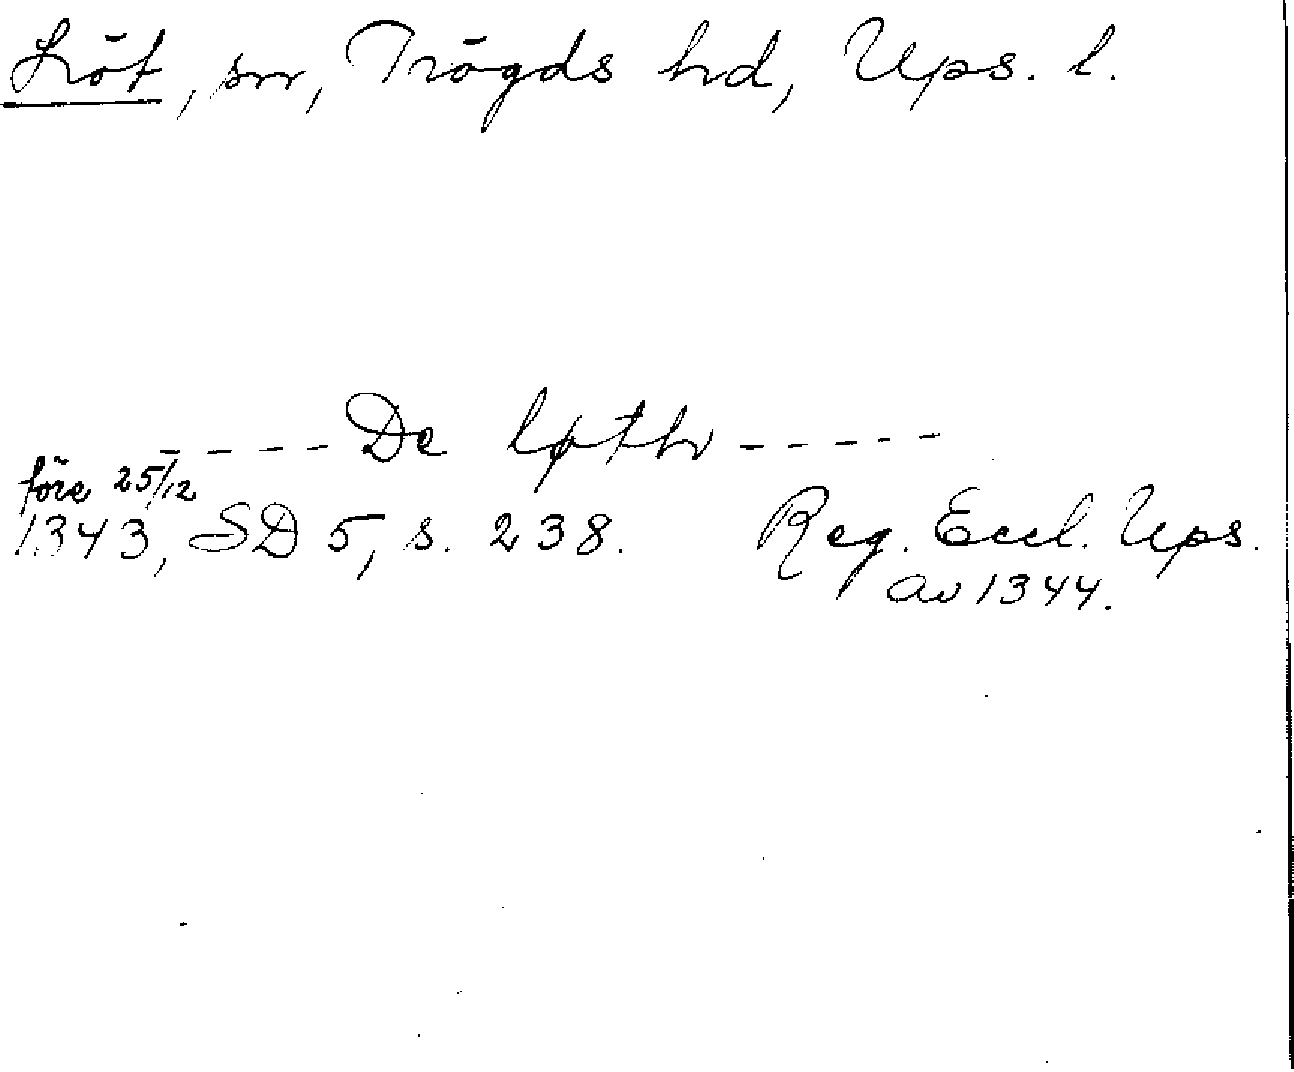 Löt, sn, Trögds hd, Ups. l.
- - - - De løth - - - - -
före 25/12
1343, SD 5, s. 238. Reg. Eccl. Ups.
av 1344.